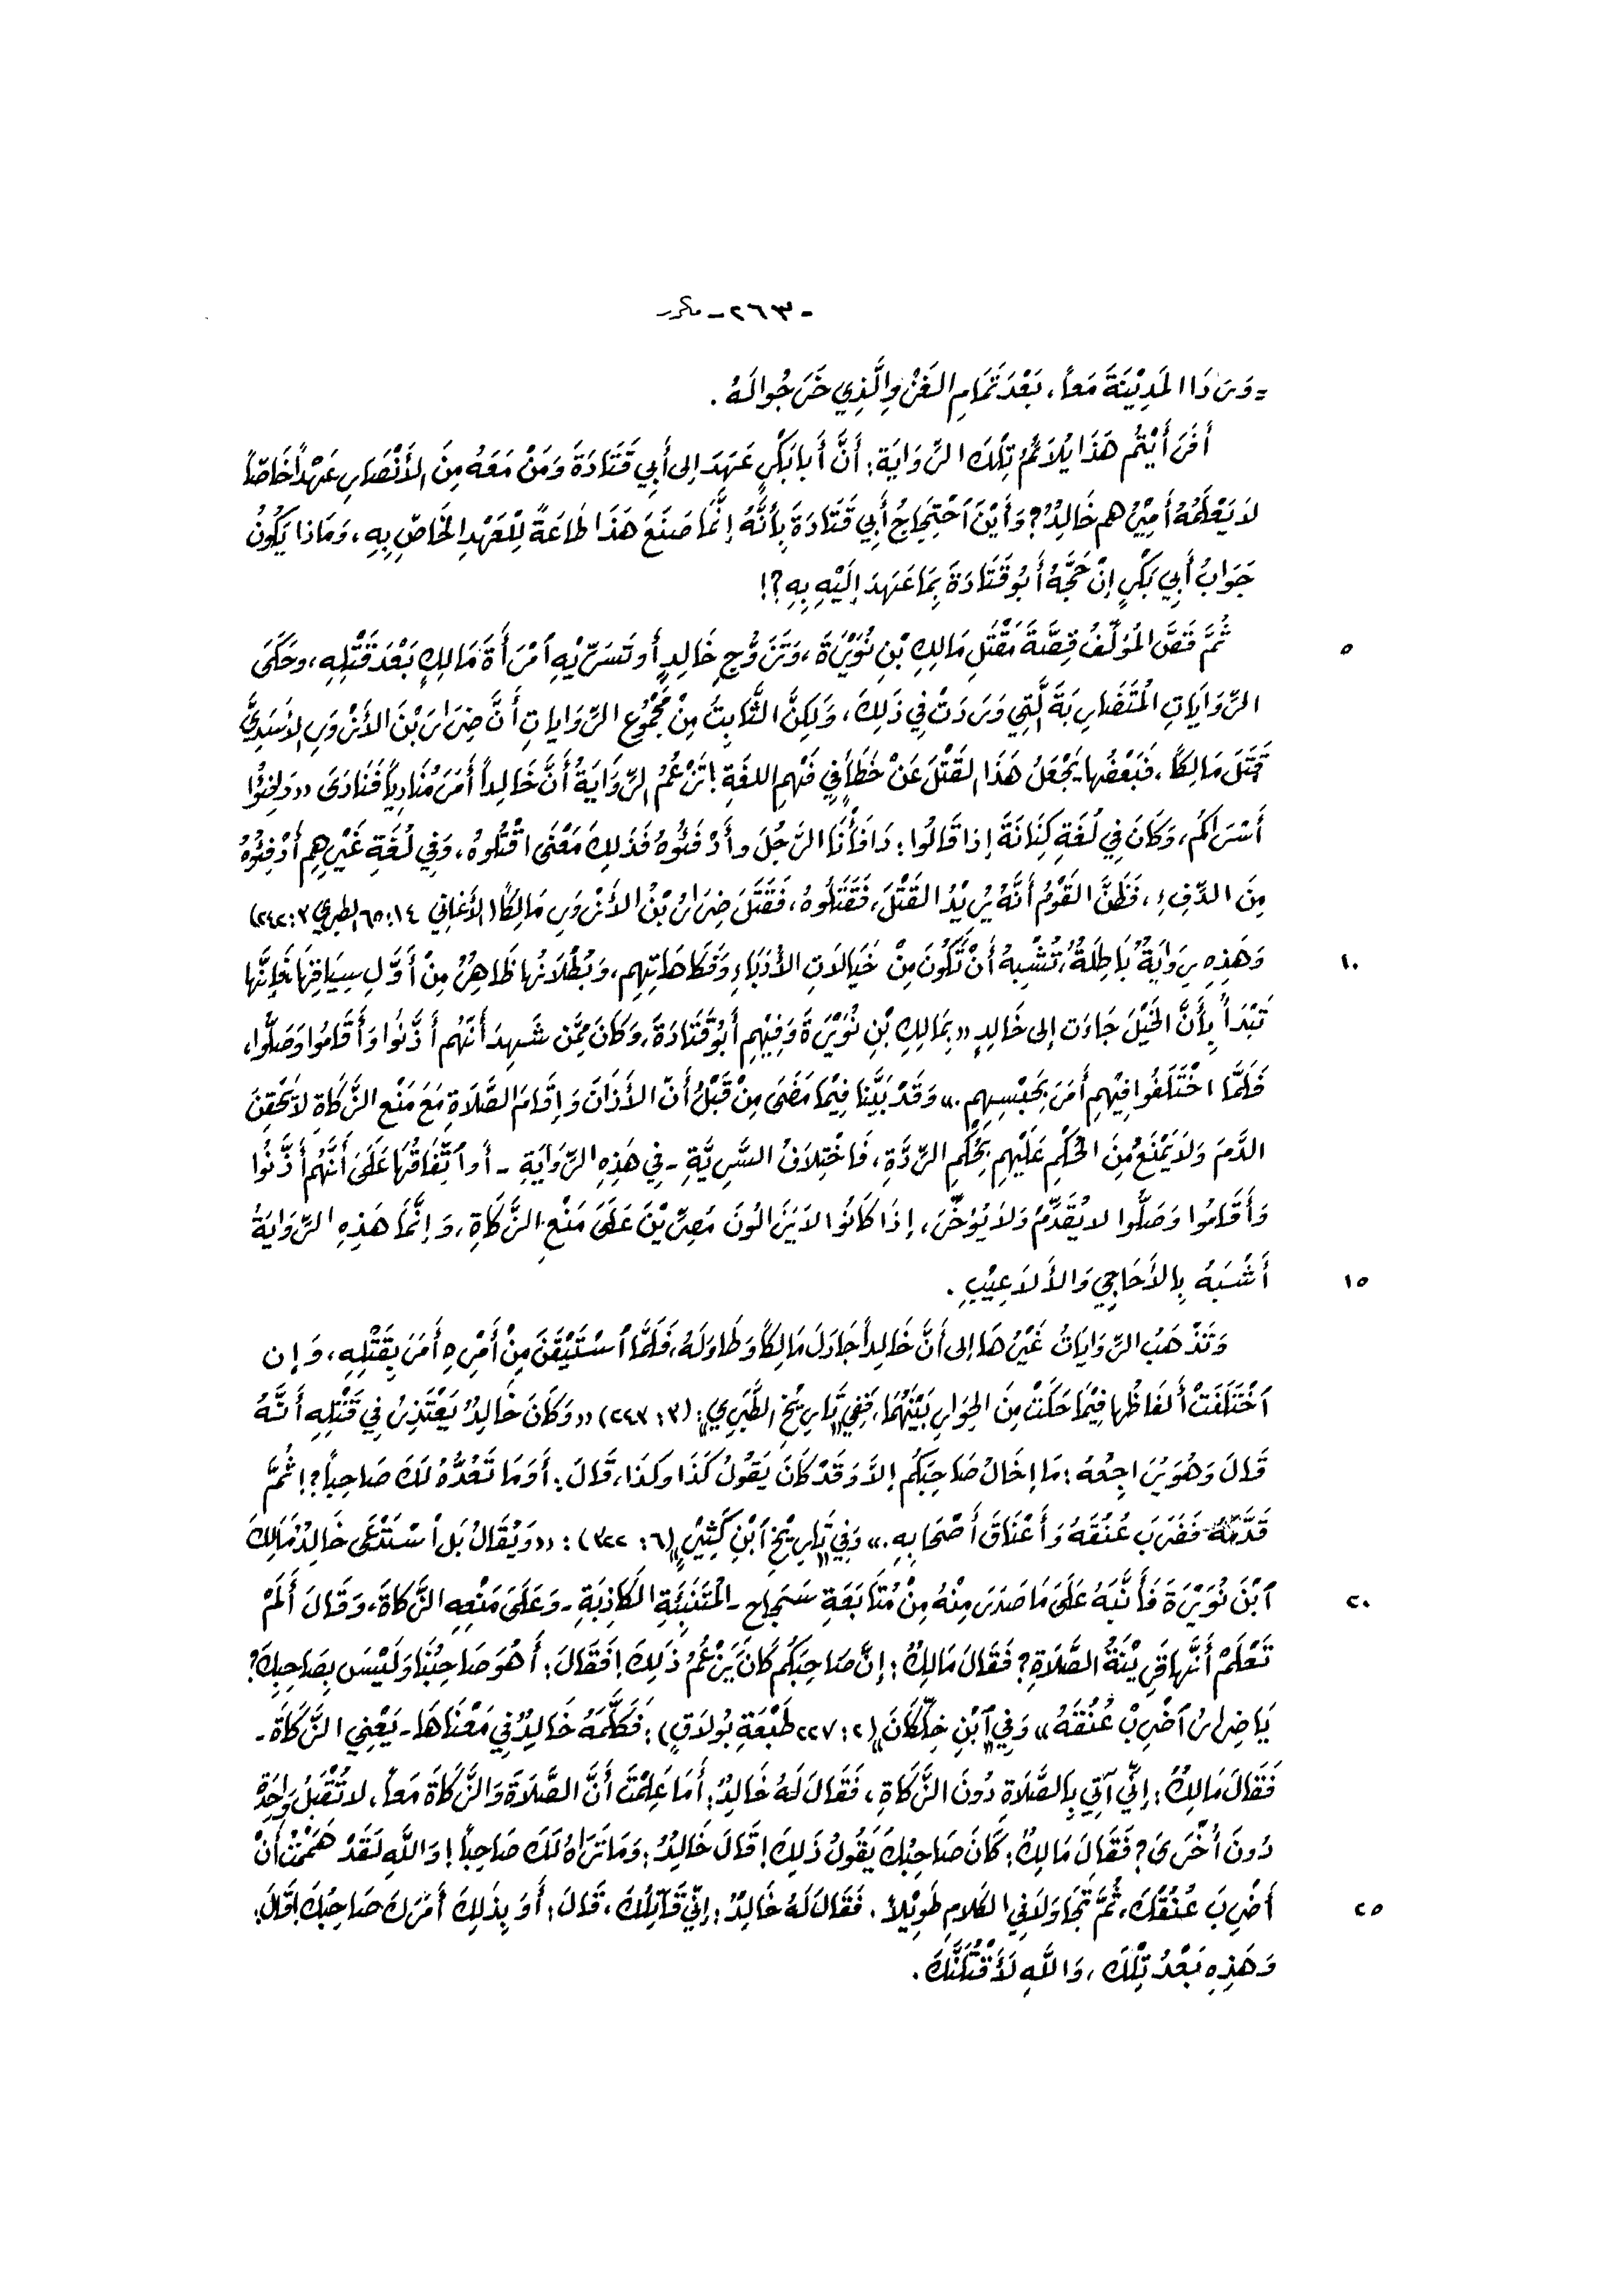 - ٢٦٣ - مكرر
= وَرَدَا الْمَدِيْنَةَ مَعاً، بَعْدَ تَمَامِ الغَزْوِ الَّذِي خَرَجُوا لَهُ .
أَفَرَأَيْتُم هَذَا يُلاَئِمُ تِلْكَ الرِّوَايَة: أَنَّ أَبَا بَكْرٍ عَهِدَ إلى أَبِي قَتَادَةَ وَمَنْ مَعَهُ مِنَ الأَنْصَارِ عَهْداً خَاصّاً
لاَ يَعْلَمُهُ أَمِيْرُهم خَالِدُ؟ وَأَيْنَ ٱحْتِجَاجُ أَبِي قَتَادَةَ بِأَنَّهُ إِنَّمَا صَنَعَ هَذَا طَاعَةً لِلْعَهْدِ الْخَاصِّ بِهِ، وَمَاذا يَكُونُ
جَوَابُ أَبِي بَكْرٍ إنْ حَجَّهُ أَبُو قَتَادَةَ بِمَا عَهِدَ إِلَيْهِ بِهِ؟!
٥ ثُمَّ قَصَّ الْمُؤَلِّفُ قِصَّةَ مَقْتَلِ مَالِكِ بْنِ نُوَيْرَةَ، وَتَزَوُّجِ خَالِدٍ أَو تَسَرِّيْهِ ٱمْرَأَةَ مَالِكٍ بَعْدَ قَتْلِهِ، وحَكَى
الرِّوَايَاتِ الْمُتَضَارِبَةَ الَّتِي وَرَدَتْ فِي ذَلِكَ، وَلَكِنَّ الثَّابِتُ مِنْ مَجْمُوعِ الرِّوَاياتِ أَنَّ ضِرَارَ بْنَ الأَزْوَرِ الأَسَدِيَّ
قَتَلَ مَالِكاً، فَبَعْضُها يَجْعَلُ هَذَا القَتْلَ عَنْ خَطَأٍ فِي فَهْمِ اللغَةِ! تَزْعُمُ الرِّوَايَةُ أَنَّ خَالِداً أَمَرَ مُنَادِياً فَنَادَى «دَافِئُوا
أَسْرَاكُم، وَكَانَ فِي لُغَةِ كِنَانَةَ إذا قَالُوا: دَافَأْنَا الرَّجُلَ وأَدْفَئُوهُ فَذَلِكَ مَعْنَى اقْتُلُوهُ، وَفِي لُغَةِ غَيْرِهِم أَدْفِئُوهُ
مِنَ الدِّفْءِ، فَظَنَّ القَوْمُ أَنَّهُ يُرِيْدُ القَتْلَ، فَقَتَلُوهُ، فَقَتَلَ ضِرَارُ بْنُ الأَزْوَرِ مَالِكاً (الأغاني ١٤: ٦٥ الطبري ٣: ٢٤٢)
١٠ وَهَذِهِ رِوَايَةٌ بَاطِلَةٌ، تُشْبِهُ أَنْ تَكُونَ مِنْ خَيَالاَتِ الأُدَبَاءِ وَفَكَاهَاتِهِم، وَبُطْلاَنُها ظَاهِرٌ مِنْ أَوَّلِ سِيَاقِهَا، فإِنَّها
تَبْدَأُ بِأَنَّ الْخَيْلَ جَاءَت إلى خَالِدٍ «بِمَالِكِ بْنِ نُوَيْرَةَ وَفِيْهِم أَبُو قَتَادَةَ، وَكَانَ مِمَّن شَهِدَ أَنَّهُم أَذَّنُوا وَأَقَامُوا وَصَلُّوا،
فَلَمَّا اخْتَلَفُوا فِيْهِم أَمَرَ بِحَبْسِهِم.» وَقَدْ بَيَّنَّا فِيْمَا مَضَى مِنْ قَبْلُ أَنّ الأَذَانَ وَإِقَامَ الصَّلاَةِ مَعَ مَنْعِ الزَّكَاةِ لاَ يَحْقِنُ
الدَّمَ وَلاَ يَمْنَعُ مِنَ الْحُكْمِ عَلَيْهِم بِحُكْمِ الرِّدَّةِ، فَاخْتِلاَفُ السَّرِيَّةِ - فِي هَذِهِ الرِّوَايَةِ - أَو ٱتِّفَاقُهَا عَلَى أَنَّهُم أَذَّنُوا
وَأَقَامُوا وَصَلُّوا لا يُقَدِّمُ وَلاَ يُؤَخِّرُ، إِذَا كَانُوا لاَ يَزَالُونَ مُصِرِّيْنَ عَلَى مَنْعِ الزَّكَاةِ، وَإِنَّمَا هَذِهِ الرِّوَايَةُ
١٥ أَشْبَهُ بِالأَحَاجِي وَالأَلاَعِيْبِ .
وَتَذْهَبُ الرِّوَايَاتُ غَيْرُهَا إلى أَنَّ خَالِداً جَادَلَ مَالِكاً وَطَاوَلَهُ، فَلَمَّا ٱسْتَيْقَنَ مِنْ أَمْرِهِ أَمَرَ بِقَتْلِهِ، وَإن
ٱخْتَلَفَتْ أَلفَاظُها فِيْمَا حَكَتْ مِنَ الحِوَارِ بَيْنَهُمَا، فَفِي "تَارِيْخِ الطَّبَرِي": (٣: ٢٤٣) «وَكَانَ خَالِدُ يَعْتَذِرُ فِي قَتْلِهِ أَنَّهُ
قَالَ وَهُوَ يُرَاجِعُهُ: مَا إِخَالُ صَاحِبَكُم إلاَّ وَقَدْ كَانَ يَقُولُ كَذَا وكَذَا، قَالَ: أَوَمَا تَعُدُّهُ لَكَ صَاحِباً؟! ثُمَّ
قَدَّمَهُ فَضَرَبَ عُنُقَهُ وَأَعْنَاقَ أَصْحَابِهِ.» وَفِي "تَارِيْخِ ٱبْنِ كَثِيْرٍ" (٦: ٣٢٢): «وَيُقَالُ بَل ٱسْتَدْعَى خَالِدٌ مَالِكَ
٢٠ ٱبْنَ نُوَيْرَةَ فَأَنَّبَهُ عَلَى مَا صَدَرَ مِنْهُ مِنْ مُتَابَعَةِ سَجَاحِ - الْمُتَنَبِّئَةِ الكَاذِبَةِ - وَعَلَى مَنْعِهِ الزَّكَاةَ، وَقَالَ أَلَمْ
تَعْلَمْ أَنَّها قَرِيْنَةُ الصَّلاَةِ؟ فَقَالَ مَالِكٌ: إِنَّ صَاحِبَكُم كَانَ يَزْعُمُ ذَلِكَ! فَقَالَ: أَهُوَ صَاحِبُنَا وَلَيْسَ بِصَاحِبِكَ؟
يَا ضِرَارُ ٱضْرِبْ عُنُقَهُ» وَفِي "ٱبْنِ خَلِّكَانَ" (٢: ٢٢٧ طَبْعَةِ بُولاَقٍ): فَكَلَّمَهُ خَالِدٌ فِي مَعْنَاهَا - يَعْنِي الزَّكَاةَ -
فَقَالَ مَالِكٌ: إنِّي آتِي بِالصَّلاَةِ دُونَ الزَّكَاةِ، فَقَالَ لَهُ خَالِدٌ: أَمَا عَلِمْتَ أَنَّ الصَّلاَةَ وَالزَّكَاةَ مَعاً، لا تُقْبَلُ وَاحِدَةٌ
دُونَ أُخْرَى؟ فَقَالَ مَالِكٌ: كَانَ صَاحِبُكَ يَقُولُ ذَلِكَ! قَالَ خَالِدٌ: وَمَا تَرَاهُ لَكَ صَاحِباً! وَاللَّهِ لَقَدْ هَمَمْتُ أَنْ
٢٥ أَضْرِبَ عُنُقَكَ، ثُمَّ تَجَاوَلاَ فِي الكَلامِ طَوِيْلاً. فَقَالَ لَهُ خَالِدٌ: إنِّي قَاتِلُكَ، قَالَ: أَوَ بِذَلِكَ أَمَرَكَ صَاحِبُكَ! قَالَ:
وَهَذِهِ بَعْدُ تِلْكَ، وَاللَّهِ لأَقْتُلَنَّكَ .